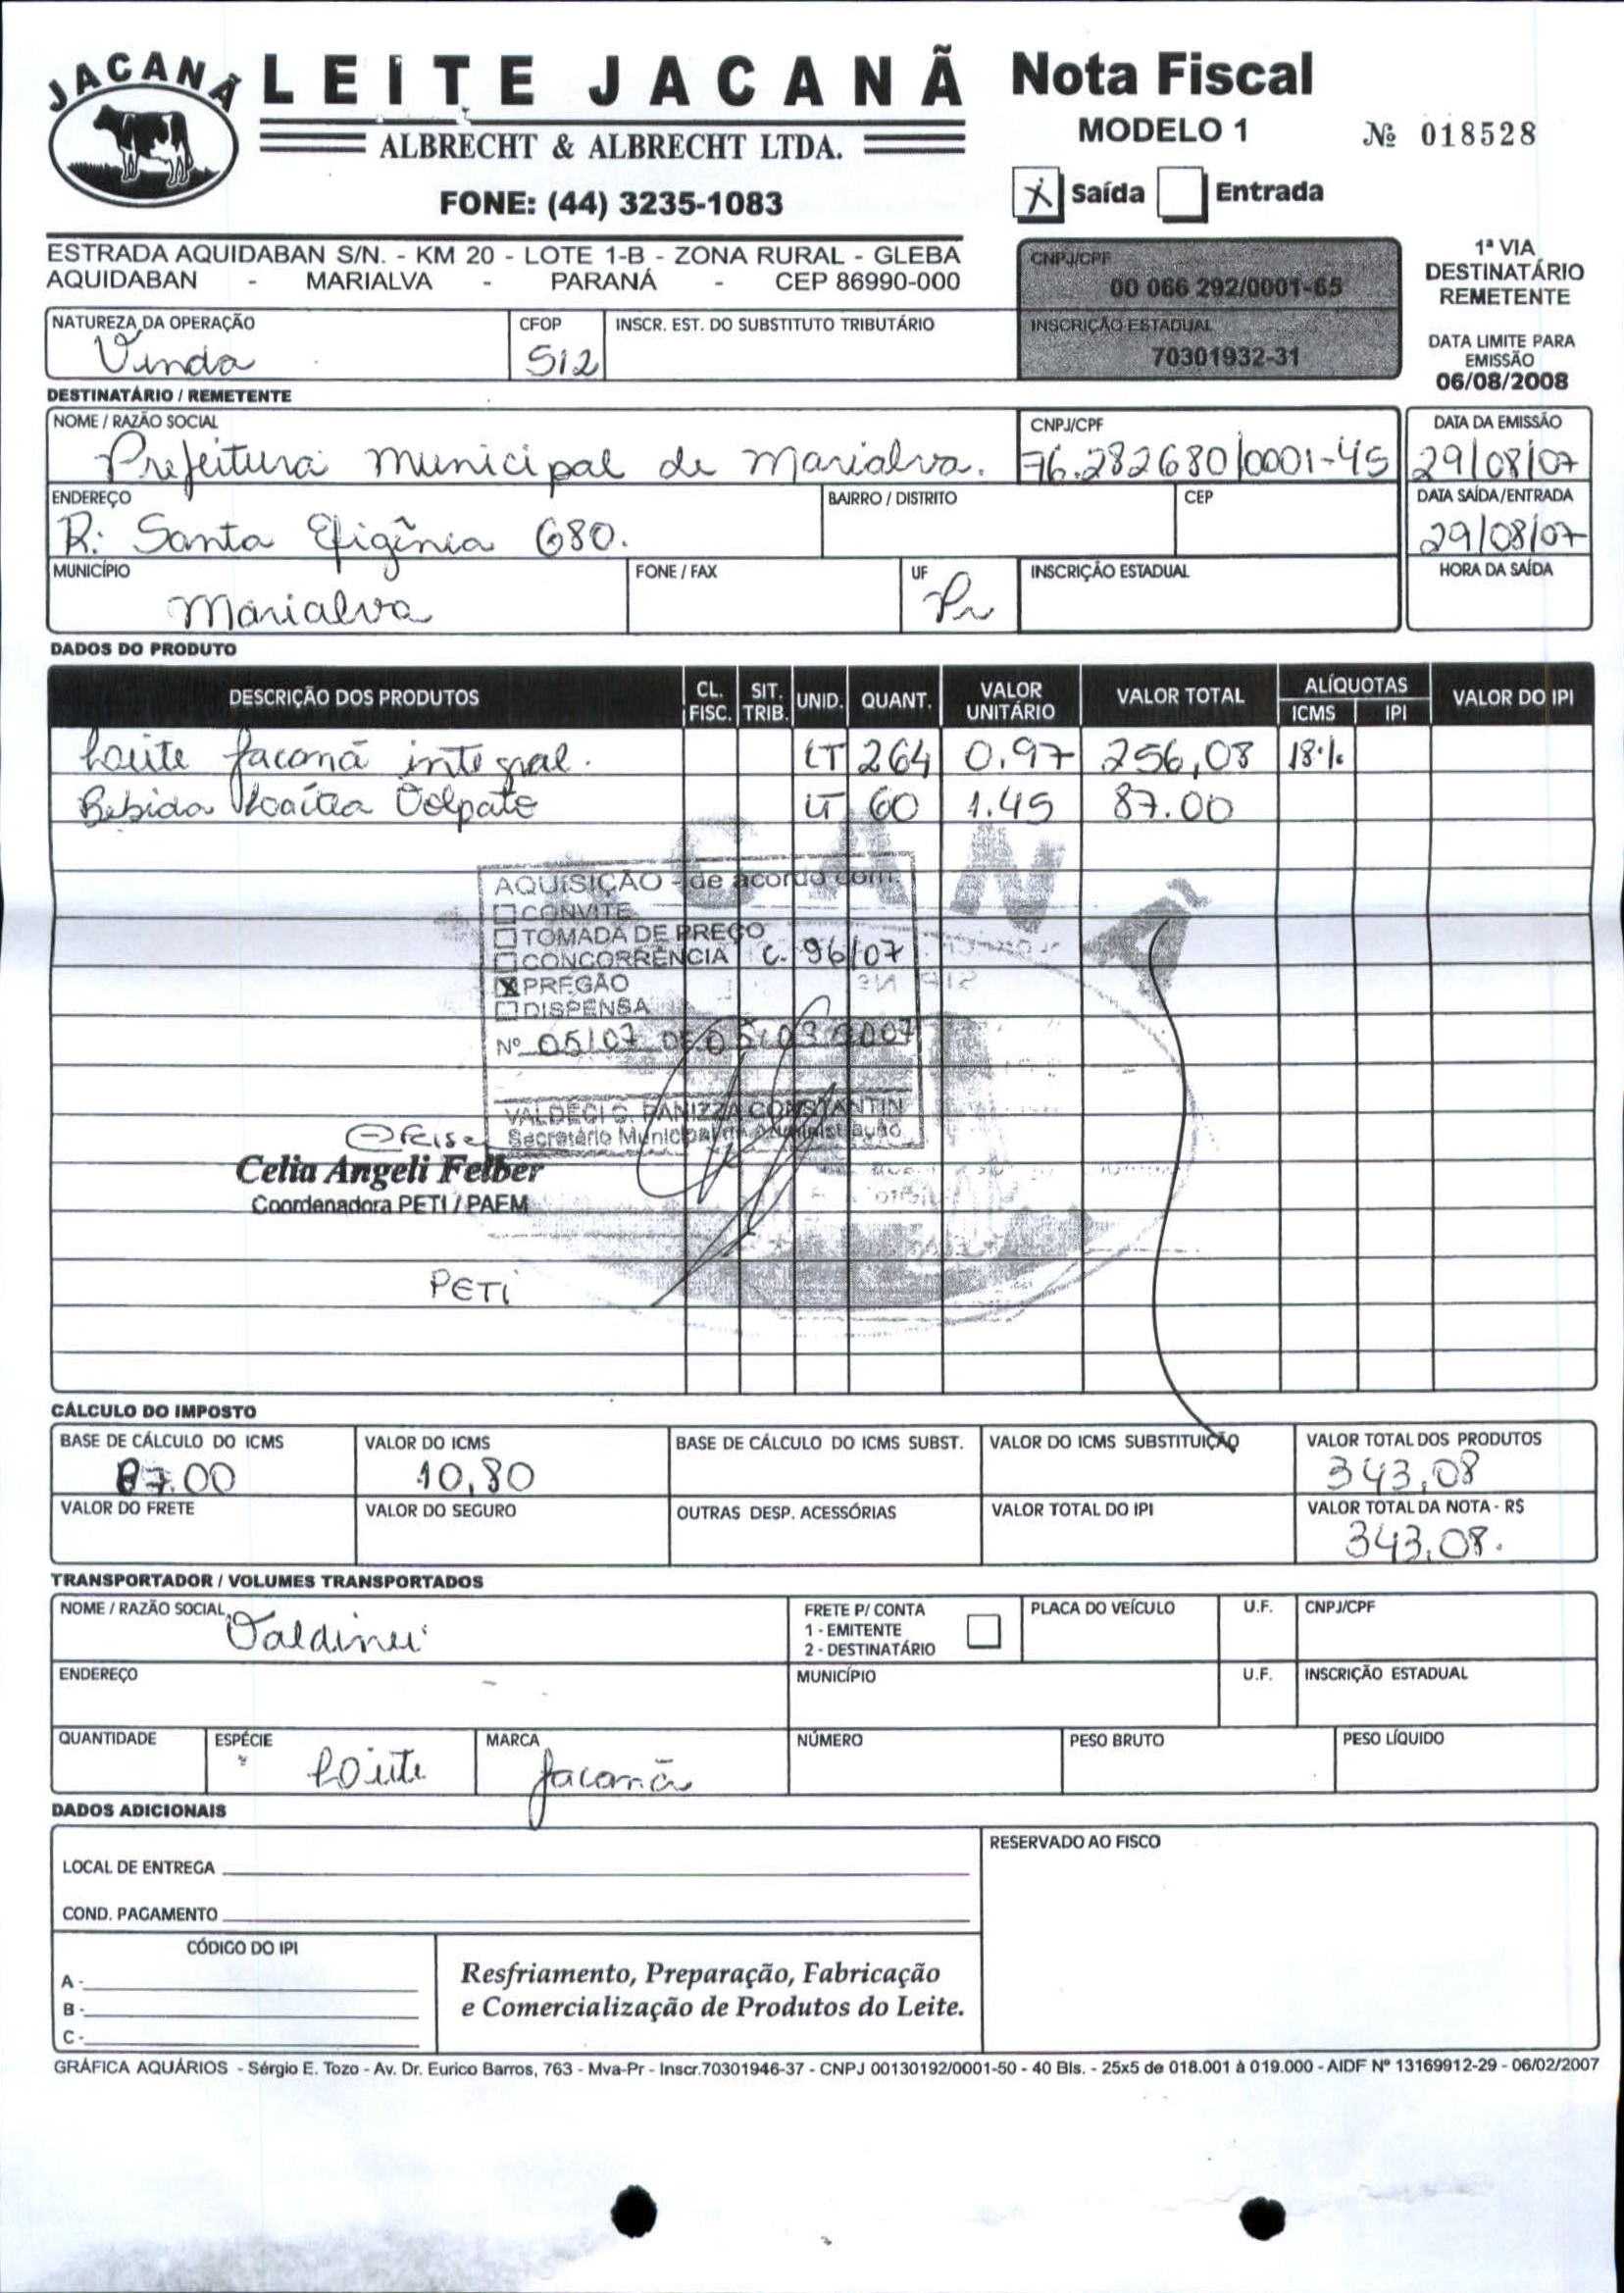 JACANÃ
LEITE JACANÃ
ALBRECHT & ALBRECHT LTDA.
FONE: (44) 3235-1083
ESTRADA AQUIDABAN S/N. - KM 20 - LOTE 1-B - ZONA RURAL - GLEBA
AQUIDABAN - MARIALVA - PARANÁ - CEP 86990-000
Nota Fiscal
MODELO 1 Nº 018528
X Saída Entrada
CNPJ/CPF
00 066 292/0001-65
INSCRIÇÃO ESTADUAL
70301932-31
1ª VIA
DESTINATÁRIO
REMETENTE
DATA LIMITE PARA
EMISSÃO
06/08/2008
NATUREZA DA OPERAÇÃO CFOP INSCR. EST. DO SUBSTITUTO TRIBUTÁRIO
Vinda 512
DESTINATÁRIO / REMETENTE
NOME / RAZÃO SOCIAL CNPJ/CPF DATA DA EMISSÃO
Prefeitura municipal de marialva. 76.282680/0001-45 29/08/07
ENDEREÇO BAIRRO / DISTRITO CEP DATA SAÍDA/ENTRADA
R: Santa Efigênia 680. 29/08/07
MUNICÍPIO FONE / FAX UF INSCRIÇÃO ESTADUAL HORA DA SAÍDA
Marialva Pr
DADOS DO PRODUTO
DESCRIÇÃO DOS PRODUTOS CL. FISC. SIT. TRIB. UNID. QUANT. VALOR UNITÁRIO VALOR TOTAL ALÍQUOTAS ICMS IPI VALOR DO IPI
Leite Jacanã integral. LT 264 0.97 256,08 18%
Bebida Láctea Volpato LT 60 1.45 87.00
AQUISIÇÃO - de acordo com:
CONVITE
TOMADA DE PREÇO
CONCORRÊNCIA C. 96/07
X PREGÃO
DISPENSA
Nº 05/07 05/03/2007
VALDECI S. PANIZZA CONSTANTIN
Secretário Municipal de Administração
Celia Angeli Felber
Coordenadora PETI / PAEM
PETI
CÁLCULO DO IMPOSTO
BASE DE CÁLCULO DO ICMS VALOR DO ICMS BASE DE CÁLCULO DO ICMS SUBST. VALOR DO ICMS SUBSTITUIÇÃO VALOR TOTAL DOS PRODUTOS
87.00 10,80 343,08
VALOR DO FRETE VALOR DO SEGURO OUTRAS DESP. ACESSÓRIAS VALOR TOTAL DO IPI VALOR TOTAL DA NOTA - R$
343,08.
TRANSPORTADOR / VOLUMES TRANSPORTADOS
NOME / RAZÃO SOCIAL FRETE P/ CONTA PLACA DO VEÍCULO U.F. CNPJ/CPF
Valdinei 1 - EMITENTE
2 - DESTINATÁRIO
ENDEREÇO MUNICÍPIO U.F. INSCRIÇÃO ESTADUAL
QUANTIDADE ESPÉCIE MARCA NÚMERO PESO BRUTO PESO LÍQUIDO
Leite Jacanã
DADOS ADICIONAIS
LOCAL DE ENTREGA RESERVADO AO FISCO
COND. PAGAMENTO
CÓDIGO DO IPI
A -
B -
C -
Resfriamento, Preparação, Fabricação
e Comercialização de Produtos do Leite.
GRÁFICA AQUÁRIOS - Sérgio E. Tozo - Av. Dr. Eurico Barros, 763 - Mva-Pr - Inscr.70301946-37 - CNPJ 00130192/0001-50 - 40 Bls. - 25x5 de 018.001 à 019.000 - AIDF Nº 13169912-29 - 06/02/2007